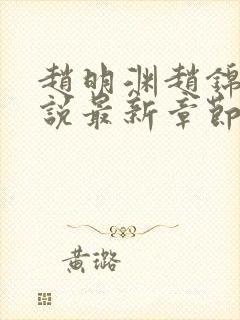 趙明渊趙錦
說最新章節
黃璐